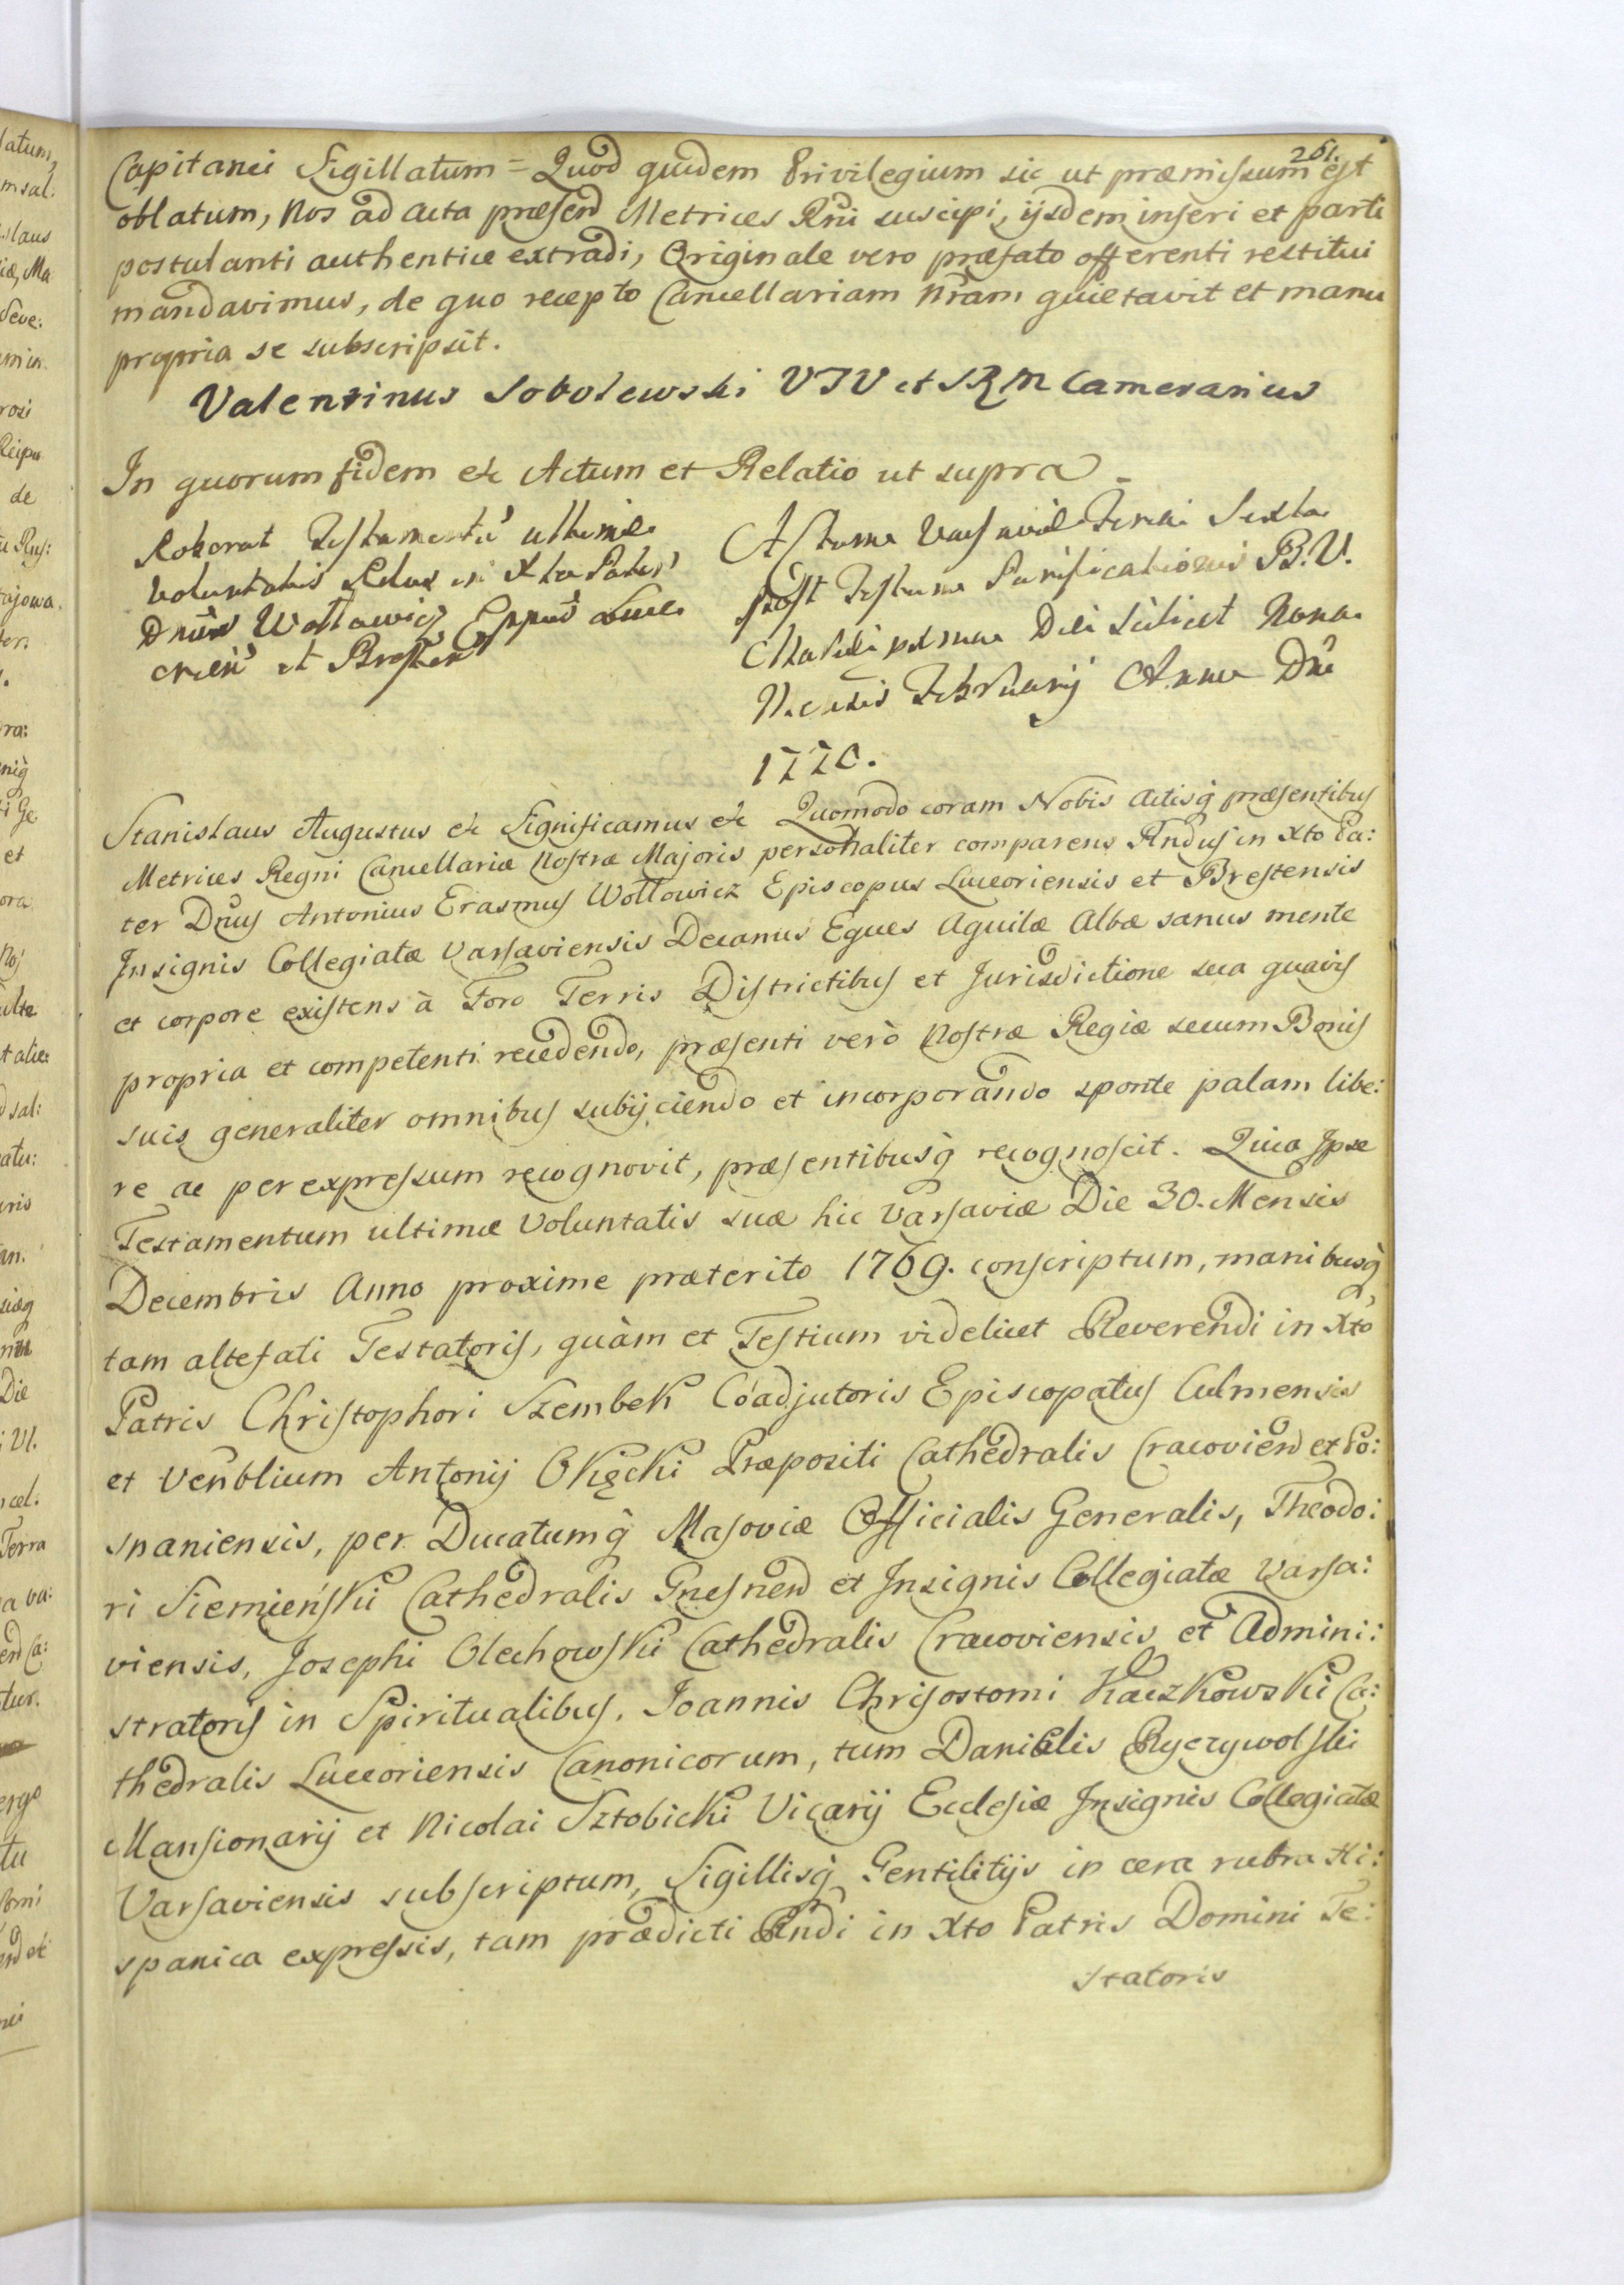 261.
Capitanei Sigillatum = Quod quidem Privilegium sic ut præmissum est
oblatum, Nos ad Acta præsend Metrices Rni suscipi, ijsdem inseri et parti
postulanti authentice extradi, Originale vero præfato offerenti restitui
mandavimus, de quo recepto Cancellariam Nram quietavit et manu
propria se subscripsit.
Valentinus Sobolewski VTV et SRM Camerarius
In quorum fidem &c Actum et Relatio ut supra
Roborat Testamenti ultimæ
Voluntatis Rdus in Xto Pater
Dnus Wołłowicz Eppus Luce
orien et Bresten
Actum Varsaviæ Feria Sexta
post Festum Purificationis B.V.
Mariæ proxima Die scilicet Nona
Mensis Februarij Anno Dni
1770.
Stanislaus Augustus &c Significamus &c Quomodo coram Nobis Actisq præsentibus
Metrices Regni Cancellariæ Nostræ Majoris personaliter comparens Rndus in Xto Pa:
ter Dnus Antonius Erasmus Wołłowicz Episcopus Luceoriensis et Brestensis
Insignis Collegiatæ Varsaviensis Decanus Eques Aquilæ Albæ sanus mente
et corpore existens à Foro Terris Districtibus et Jurisdictione sua quavis
propria et competenti recedendo, præsenti verò Nostræ Regiæ secum Bonis
suis generaliter omnibus subijciendo et incorporando sponte palam libe:
re ac per expressum recognovit, præsentibusq recognoscit. Quia Ipse
Testamentum ultimæ Voluntatis suæ hic Varsaviæ Die 30. Mensis
Decembris Anno proxime præterito 1769. conscriptum, manibusq
tam altefati Testatoris, quàm et Testium videlicet Reverendi in Xto
Patris Christophori Szembek Coadjutoris Episcopatus Culmensis
et Venblium Antonij Okęcki Præpositi Cathedralis Cracoviend et Po:
snaniensis, per Ducatumq Masoviæ Officialis Generalis, Theodo:
ri Siemieński Cathedralis Gnesnend et Insignis Collegiatæ Varsa:
viensis, Josephi Olechowski Cathedralis Cracoviensis et Admini:
stratoris in Spiritualibus, Joannis Chrisostomi Kaczkowski Ca:
thedralis Luceoriensis Canonicorum, tum Danielis Ryczywolski
Mansionarij et Nicolai Sztobicki Vicarij Ecclesiæ Insignis Collegiatæ
Varsaviensis subscriptum, Sigillisq Gentilitijs in cera rubra Hi:
spanica expressis, tam prædicti Rndi in Xto Patris Domini Te:
statoris